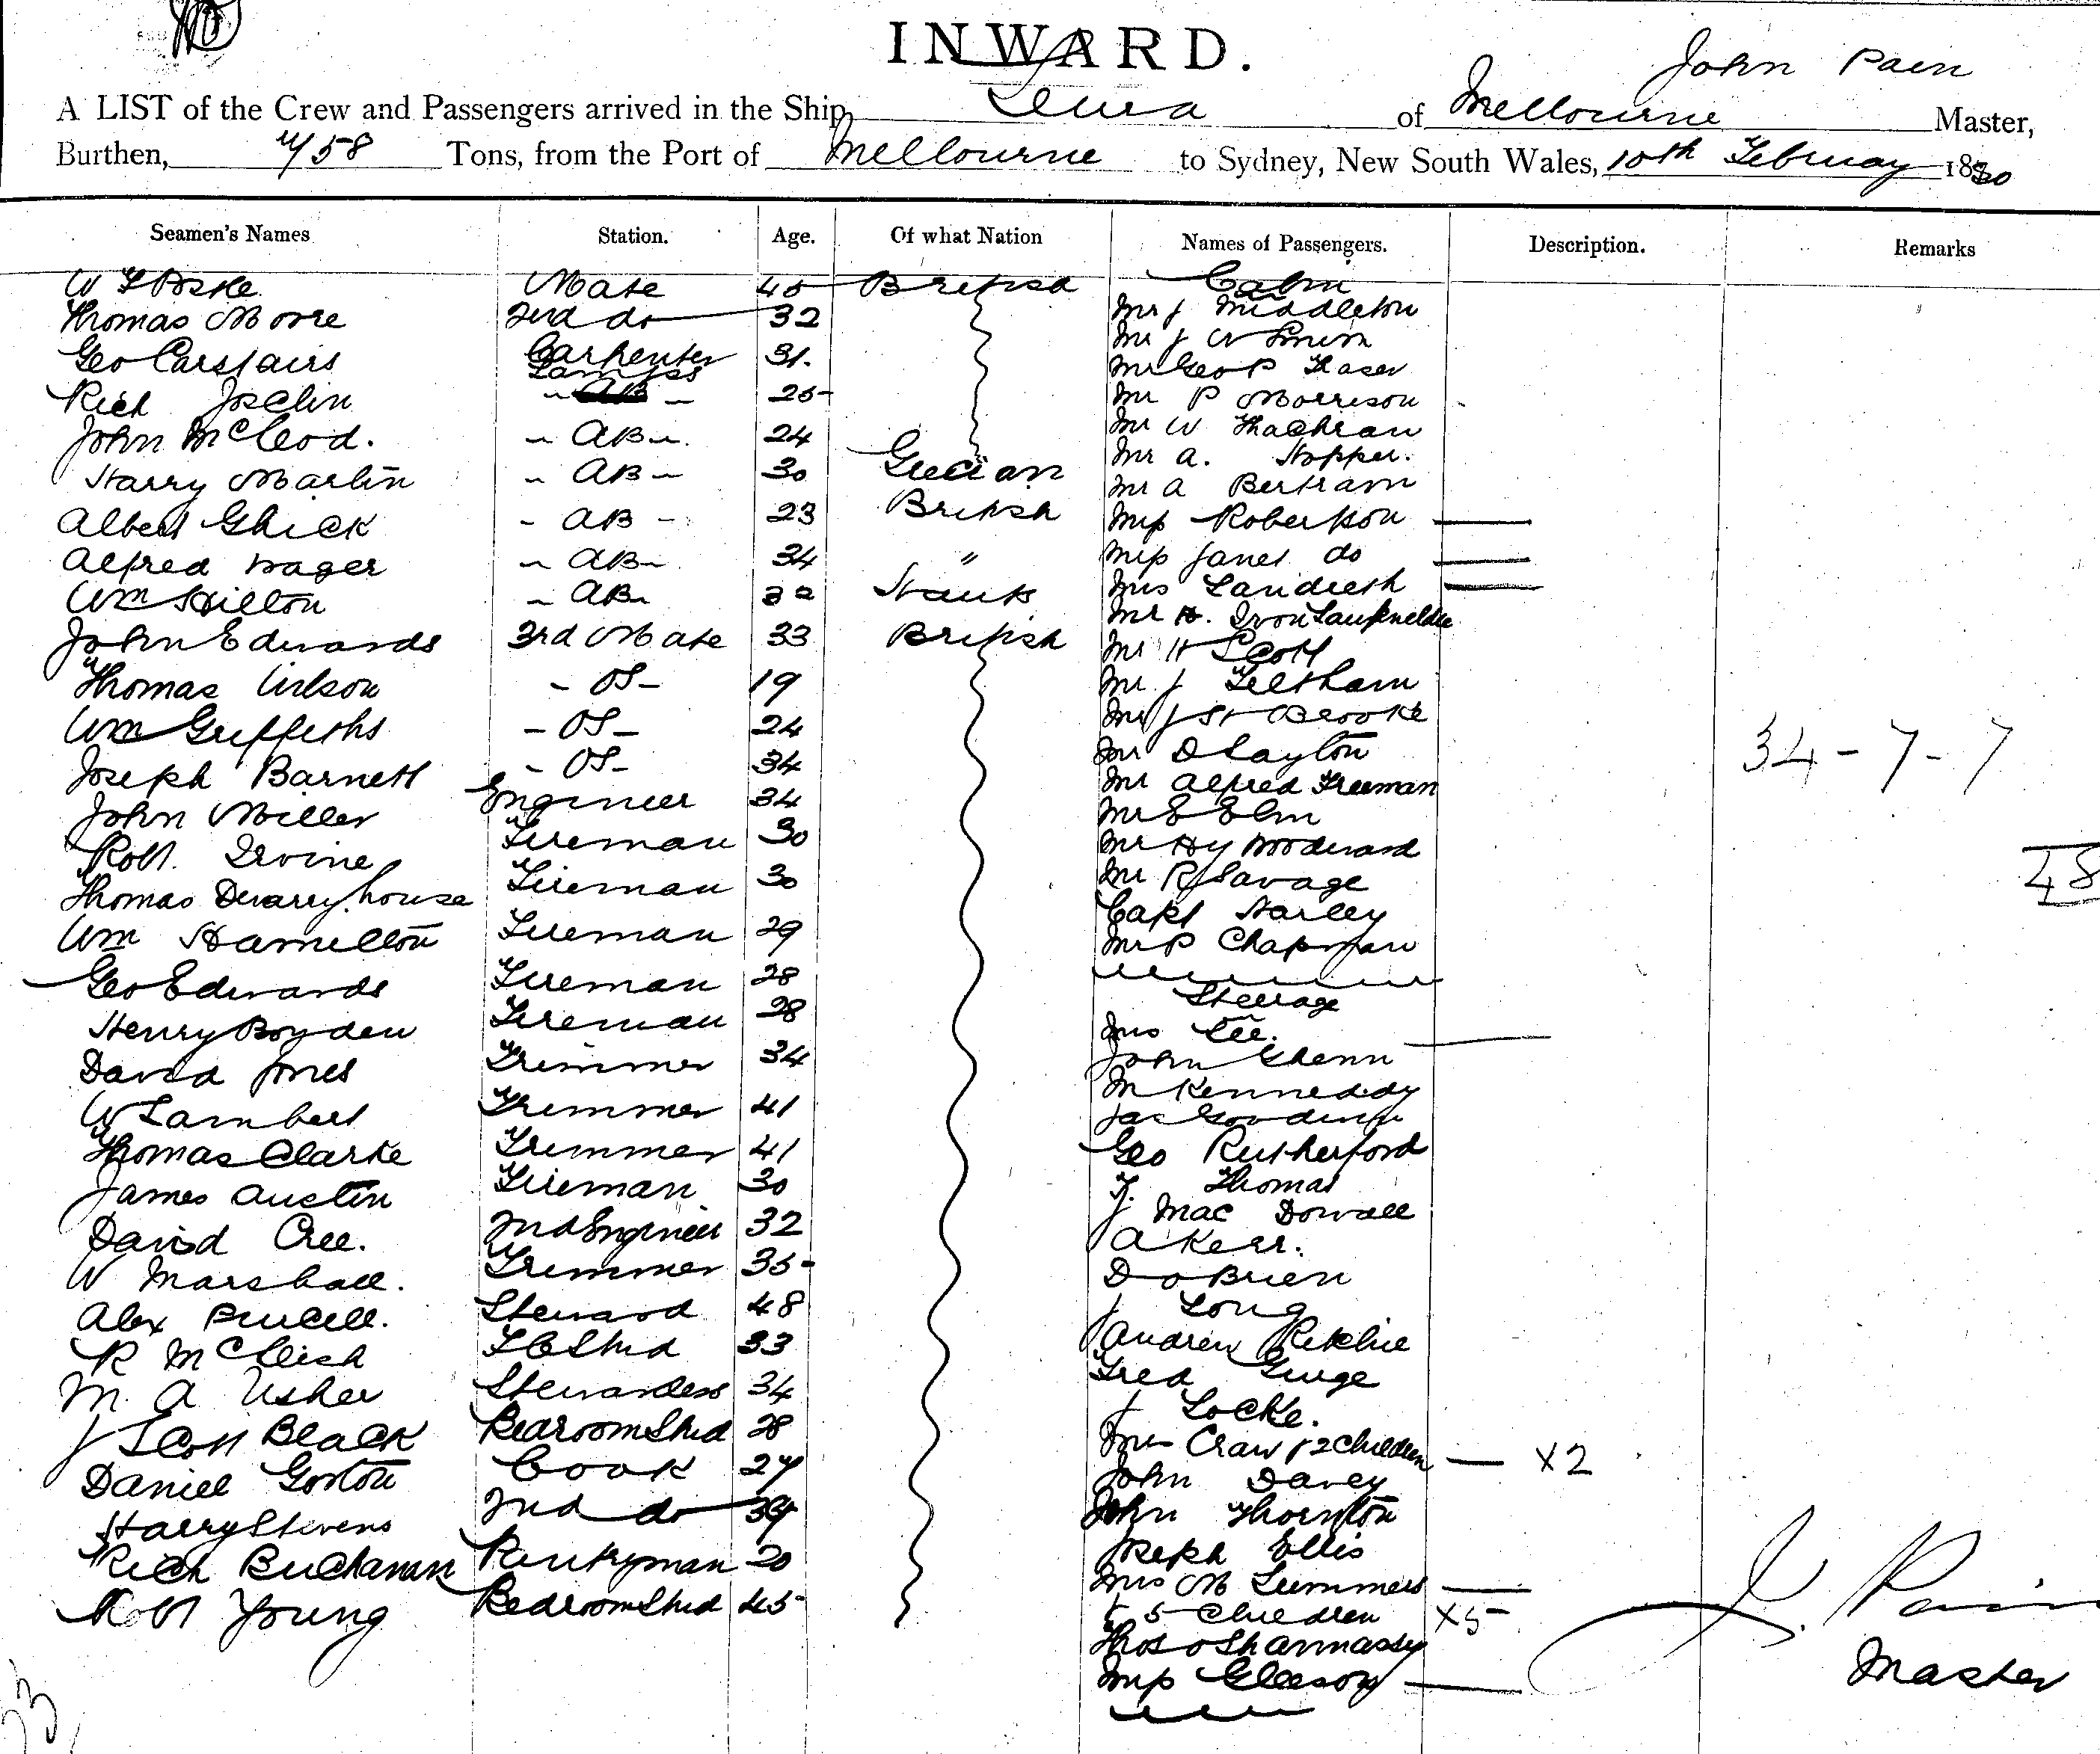 INWARD.
John Pain
A LIST of the Crew and Passengers arrived in the Ship of Melbourne Master,
Burthen, Tons, from the Port of Melbourne to Sydney, New South Wales, 10th February 18
Seamen's Names Station. Age. Of what Nation Names of Passengers. Description. Remarks
W Mate 45 British Cabin
Thomas Moore 2nd do 32 Mr J Middleton
Geo Carstairs Carpenter 31. Mr J W
Lamps Mr Geo P Fraser
Rich Joselin AB 25 Mr P Morrison
John McLeod. AB 24 Mr W
Mr A. Hopper.
Harry Martin AB 30 Grecian Mr A Bertram
Albert Ghick AB 23 British Miss Robertson
Alfred Wager AB 34 " Miss Janet do
Wm Hilton AB Mrs Landreth
Mr H.
John Edwards 3rd Mate 33 British Mr H Scott
Thomas Wilson OS 19 Mr J Feltham
Wm Griffiths OS 24 Mr J St Brooke
Joseph Barnett OS 34 Mr D Layton 34-7-7
John Miller Engineer 34 Mr Alfred Freeman
Mr E Elm
Robt. Irvine Fireman 30 Mr Hy Woodward
48
Thomas Fireman 30 Mr R Savage
Wm Hamilton Fireman 29 Capt Harley
Mr P Chapman
Geo Edwards Fireman 28 Steerage
Henry Boyden Fireman 28 Mrs Lee.
David Jones Trimmer 34 John Glenn
W Lambert Trimmer 41 M Kennedy
Jas Gooding
Thomas Clarke Trimmer 41 Geo Rutherford
James Austin Fireman 30 T. Thomas
David Cree. 2nd Engineer 32 J Mac Dowall
A Kerr.
W Marshall. Trimmer 35 D O Brien
Alex Purcell. Steward 48 J Long
R McCleish F C Stwd 33 Andrew Ritchie
M A Usher Stewardess 34 Fred Ginge
J Scott Black Bedroom Stwd 28 J Locke.
Mrs Craw & 2 Children X2
Daniel Gorton Cook 27 John Davey
Harry Stevens 2nd do 39 John Thornton
Rich Buchanan Pantryman 20 Joseph Ellis
Robt Young Bedroom Stwd 45 Mrs M Summers
& 5 Children X5
Thos O Shannassy J. Pain
Miss Gleeson Master